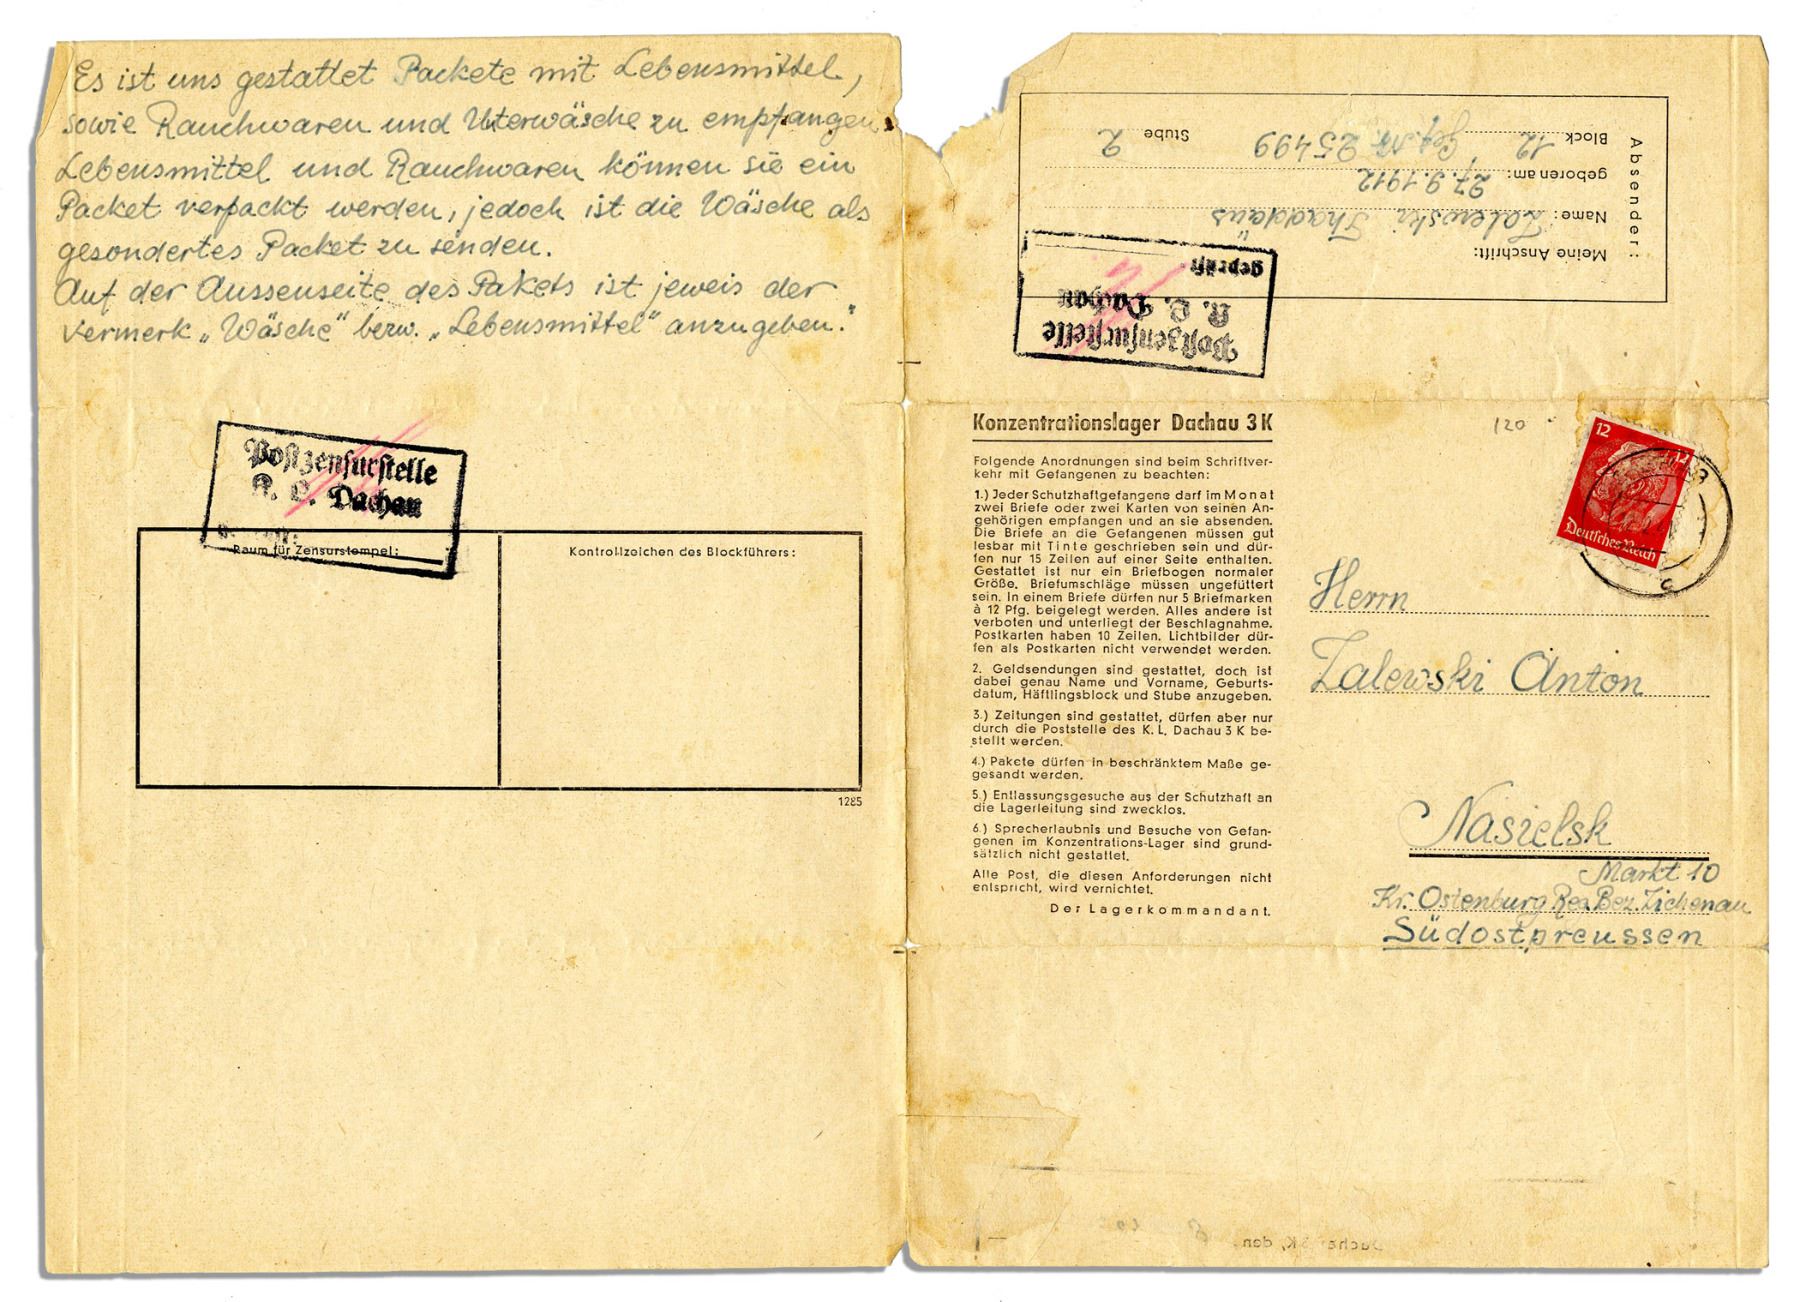 Es ist uns gestattet Packete mit Lebensmittel,
sowie Rauchwaren und Uterwäsche zu empfangen.
Lebensmittel und Rauchwaren können sie ein
Packet verpackt werden, jedoch ist die Wäsche als
gesondertes Packet zu senden.
Auf der Aussenseite des Pakets ist jeweis der
Vermerk „Wäsche" bezw. „Lebensmittel" anzugeben."
Postzensurstelle
K. L. Dachau
Raum für Zensurstempel:
Kontrollzeichen des Blockführers:
1285
Absender:
Meine Anschrift:
Name: Zalewski Thaddäus
geboren am: 27.9.1912
Block 12 Gef. Nr. 25499 Stube 2
Postzensurstelle
K. L. Dachau
geprüft
Konzentrationslager Dachau 3 K
Folgende Anordnungen sind beim Schriftver-
kehr mit Gefangenen zu beachten:
1.) Jeder Schutzhaftgefangene darf im Monat
zwei Briefe oder zwei Karten von seinen An-
gehörigen empfangen und an sie absenden.
Die Briefe an die Gefangenen müssen gut
lesbar mit Tinte geschrieben sein und dür-
fen nur 15 Zeilen auf einer Seite enthalten.
Gestattet ist nur ein Briefbogen normaler
Größe. Briefumschläge müssen ungefüttert
sein. In einem Briefe dürfen nur 5 Briefmarken
à 12 Pfg. beigelegt werden. Alles andere ist
verboten und unterliegt der Beschlagnahme.
Postkarten haben 10 Zeilen. Lichtbilder dür-
fen als Postkarten nicht verwendet werden.
2. Geldsendungen sind gestattet, doch ist
dabei genau Name und Vorname, Geburts-
datum, Häftlingsblock und Stube anzugeben.
3.) Zeitungen sind gestattet, dürfen aber nur
durch die Poststelle des K. L. Dachau 3 K be-
stellt werden.
4.) Pakete dürfen in beschränktem Maße ge-
gesandt werden.
5.) Entlassungsgesuche aus der Schutzhaft an
die Lagerleitung sind zwecklos.
6.) Sprecherlaubnis und Besuche von Gefan-
genen im Konzentrations-Lager sind grund-
sätzlich nicht gestattet.
Alle Post, die diesen Anforderungen nicht
entspricht, wird vernichtet.
Der Lagerkommandant.
120
12
12
Deutsches Reich
c
Herrn
Zalewski Anton
Nasielsk
Markt 10
Kr. Ostenburg Reg. Bez. Zichenau
Südostpreussen